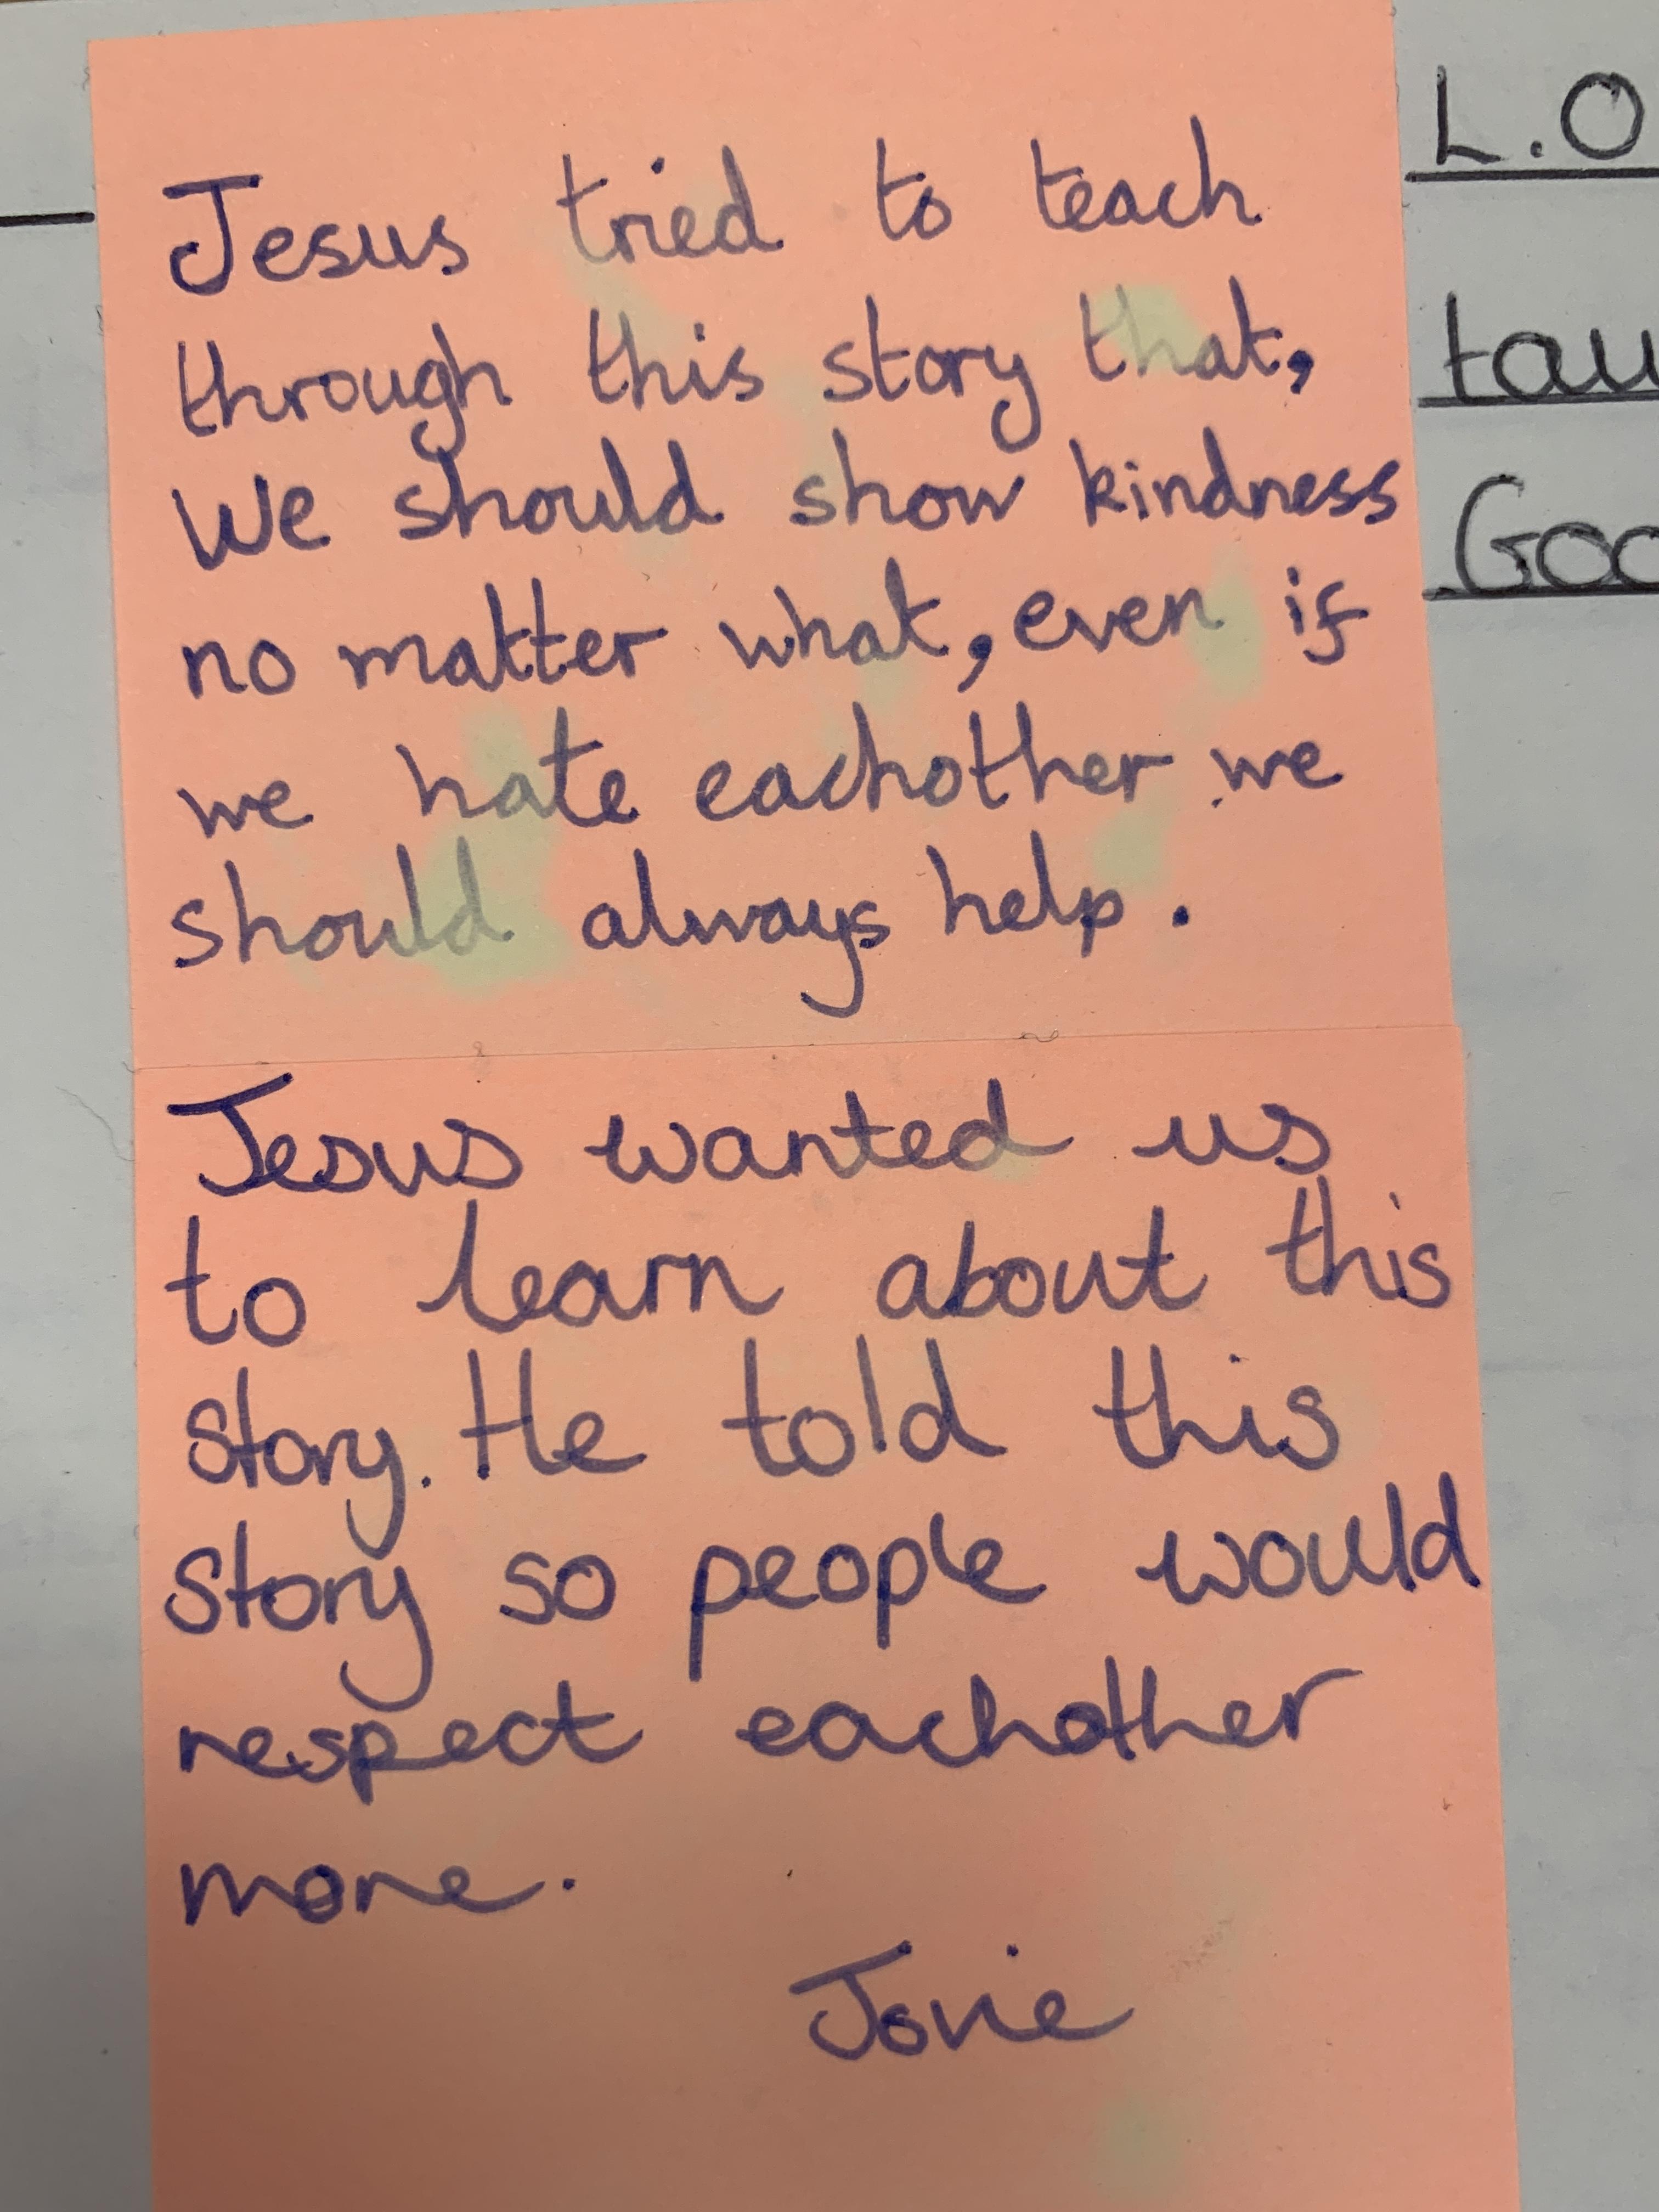 Jesus tried to teach
through this story that,
We should show kindness
no matter what, even if
we hate eachother we
should always help.
Jesus wanted us
to learn about this
story. He told this
story so people would
respect eachother
more.
Jovie
L.O
tau
Goo